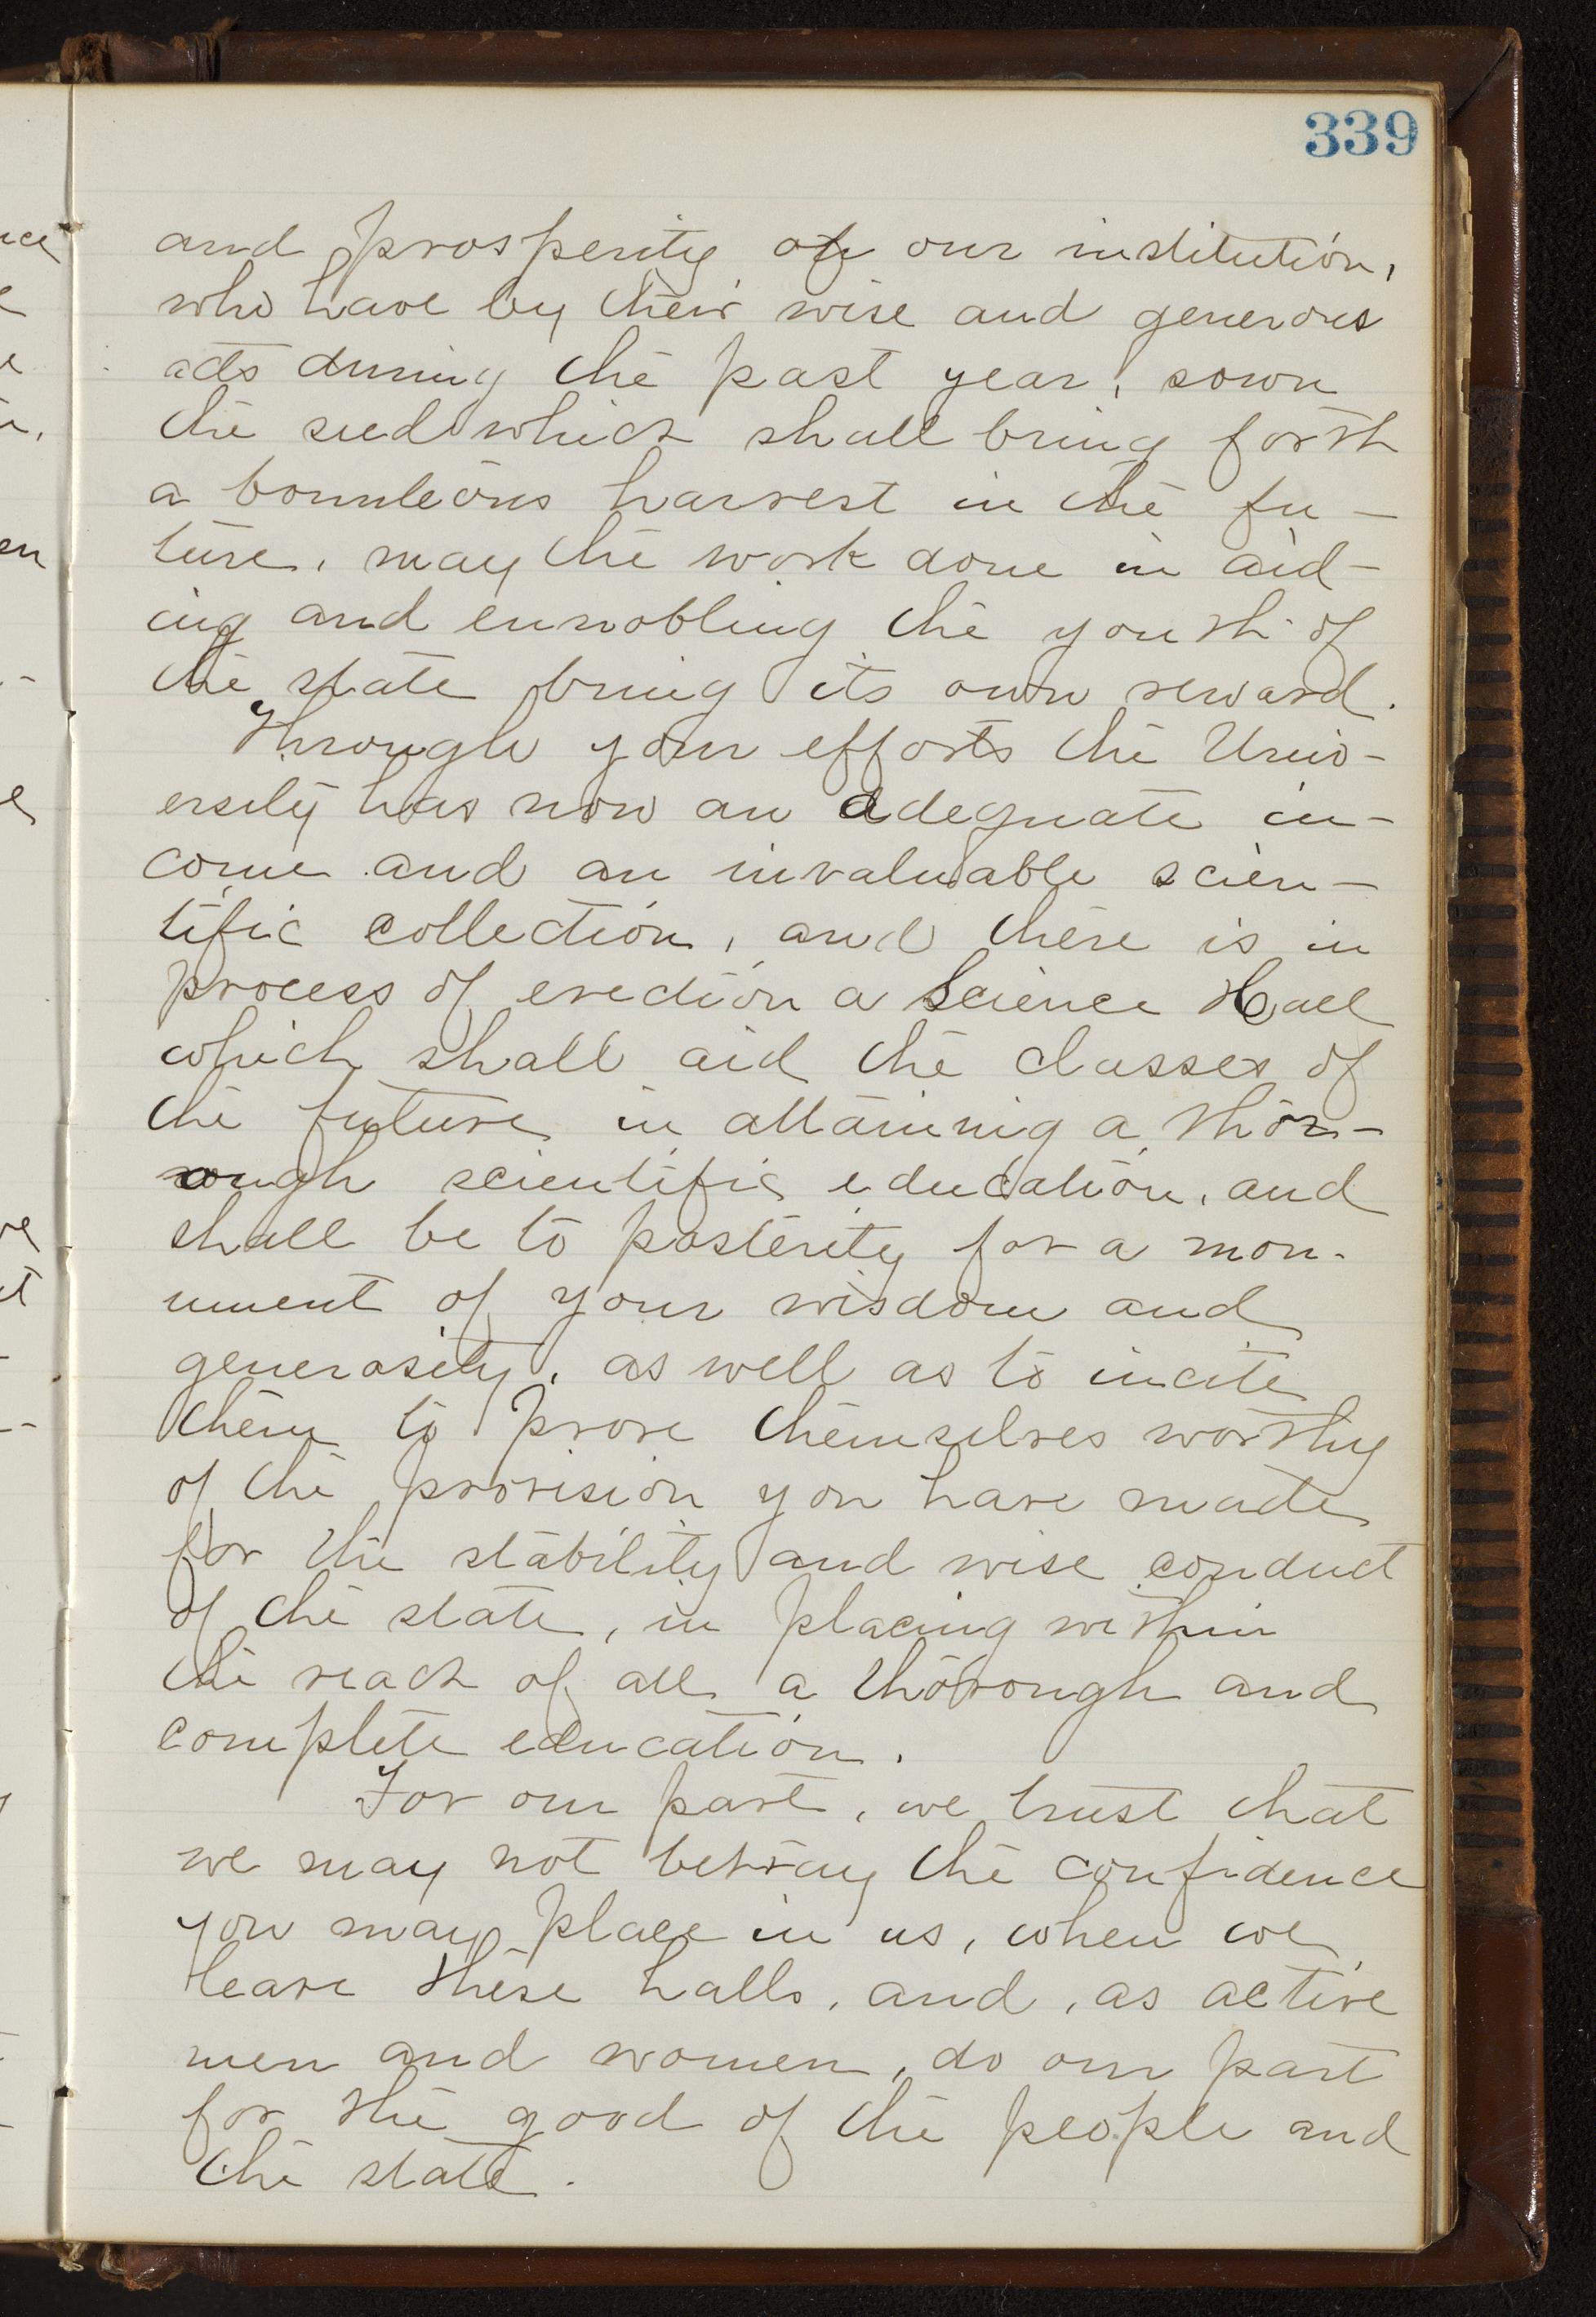 339
and prosperity of our institution,
who have by their wise and generous
acts during the past year, sown
the seed which shall bring forth
a bounteous harvest in the fu-
ture, may the work done in aid-
ing and ennobling the youth of
the state bring its own reward.
Through your efforts the Univ-
ersity has now an adequate in-
come and an invaluable scien-
tific collection, and there is in
process of erection a Science Hall
which shall aid the classes of
the future in attaining a thor-
ough scientific education, and
shall be to posterity for a mon-
ument of your wisdom and
generosity, as well as to incite
them to prove themselves worthy
of the provision you have made
for the stability and wise conduct
of the state, in placing within
the reach of all a thorough and
complete education.
For our part, we trust that
we may not betray the confidence
you may place in us, when we
leave these halls, and, as active
men and women, do our part
for the good of the people and
the state.